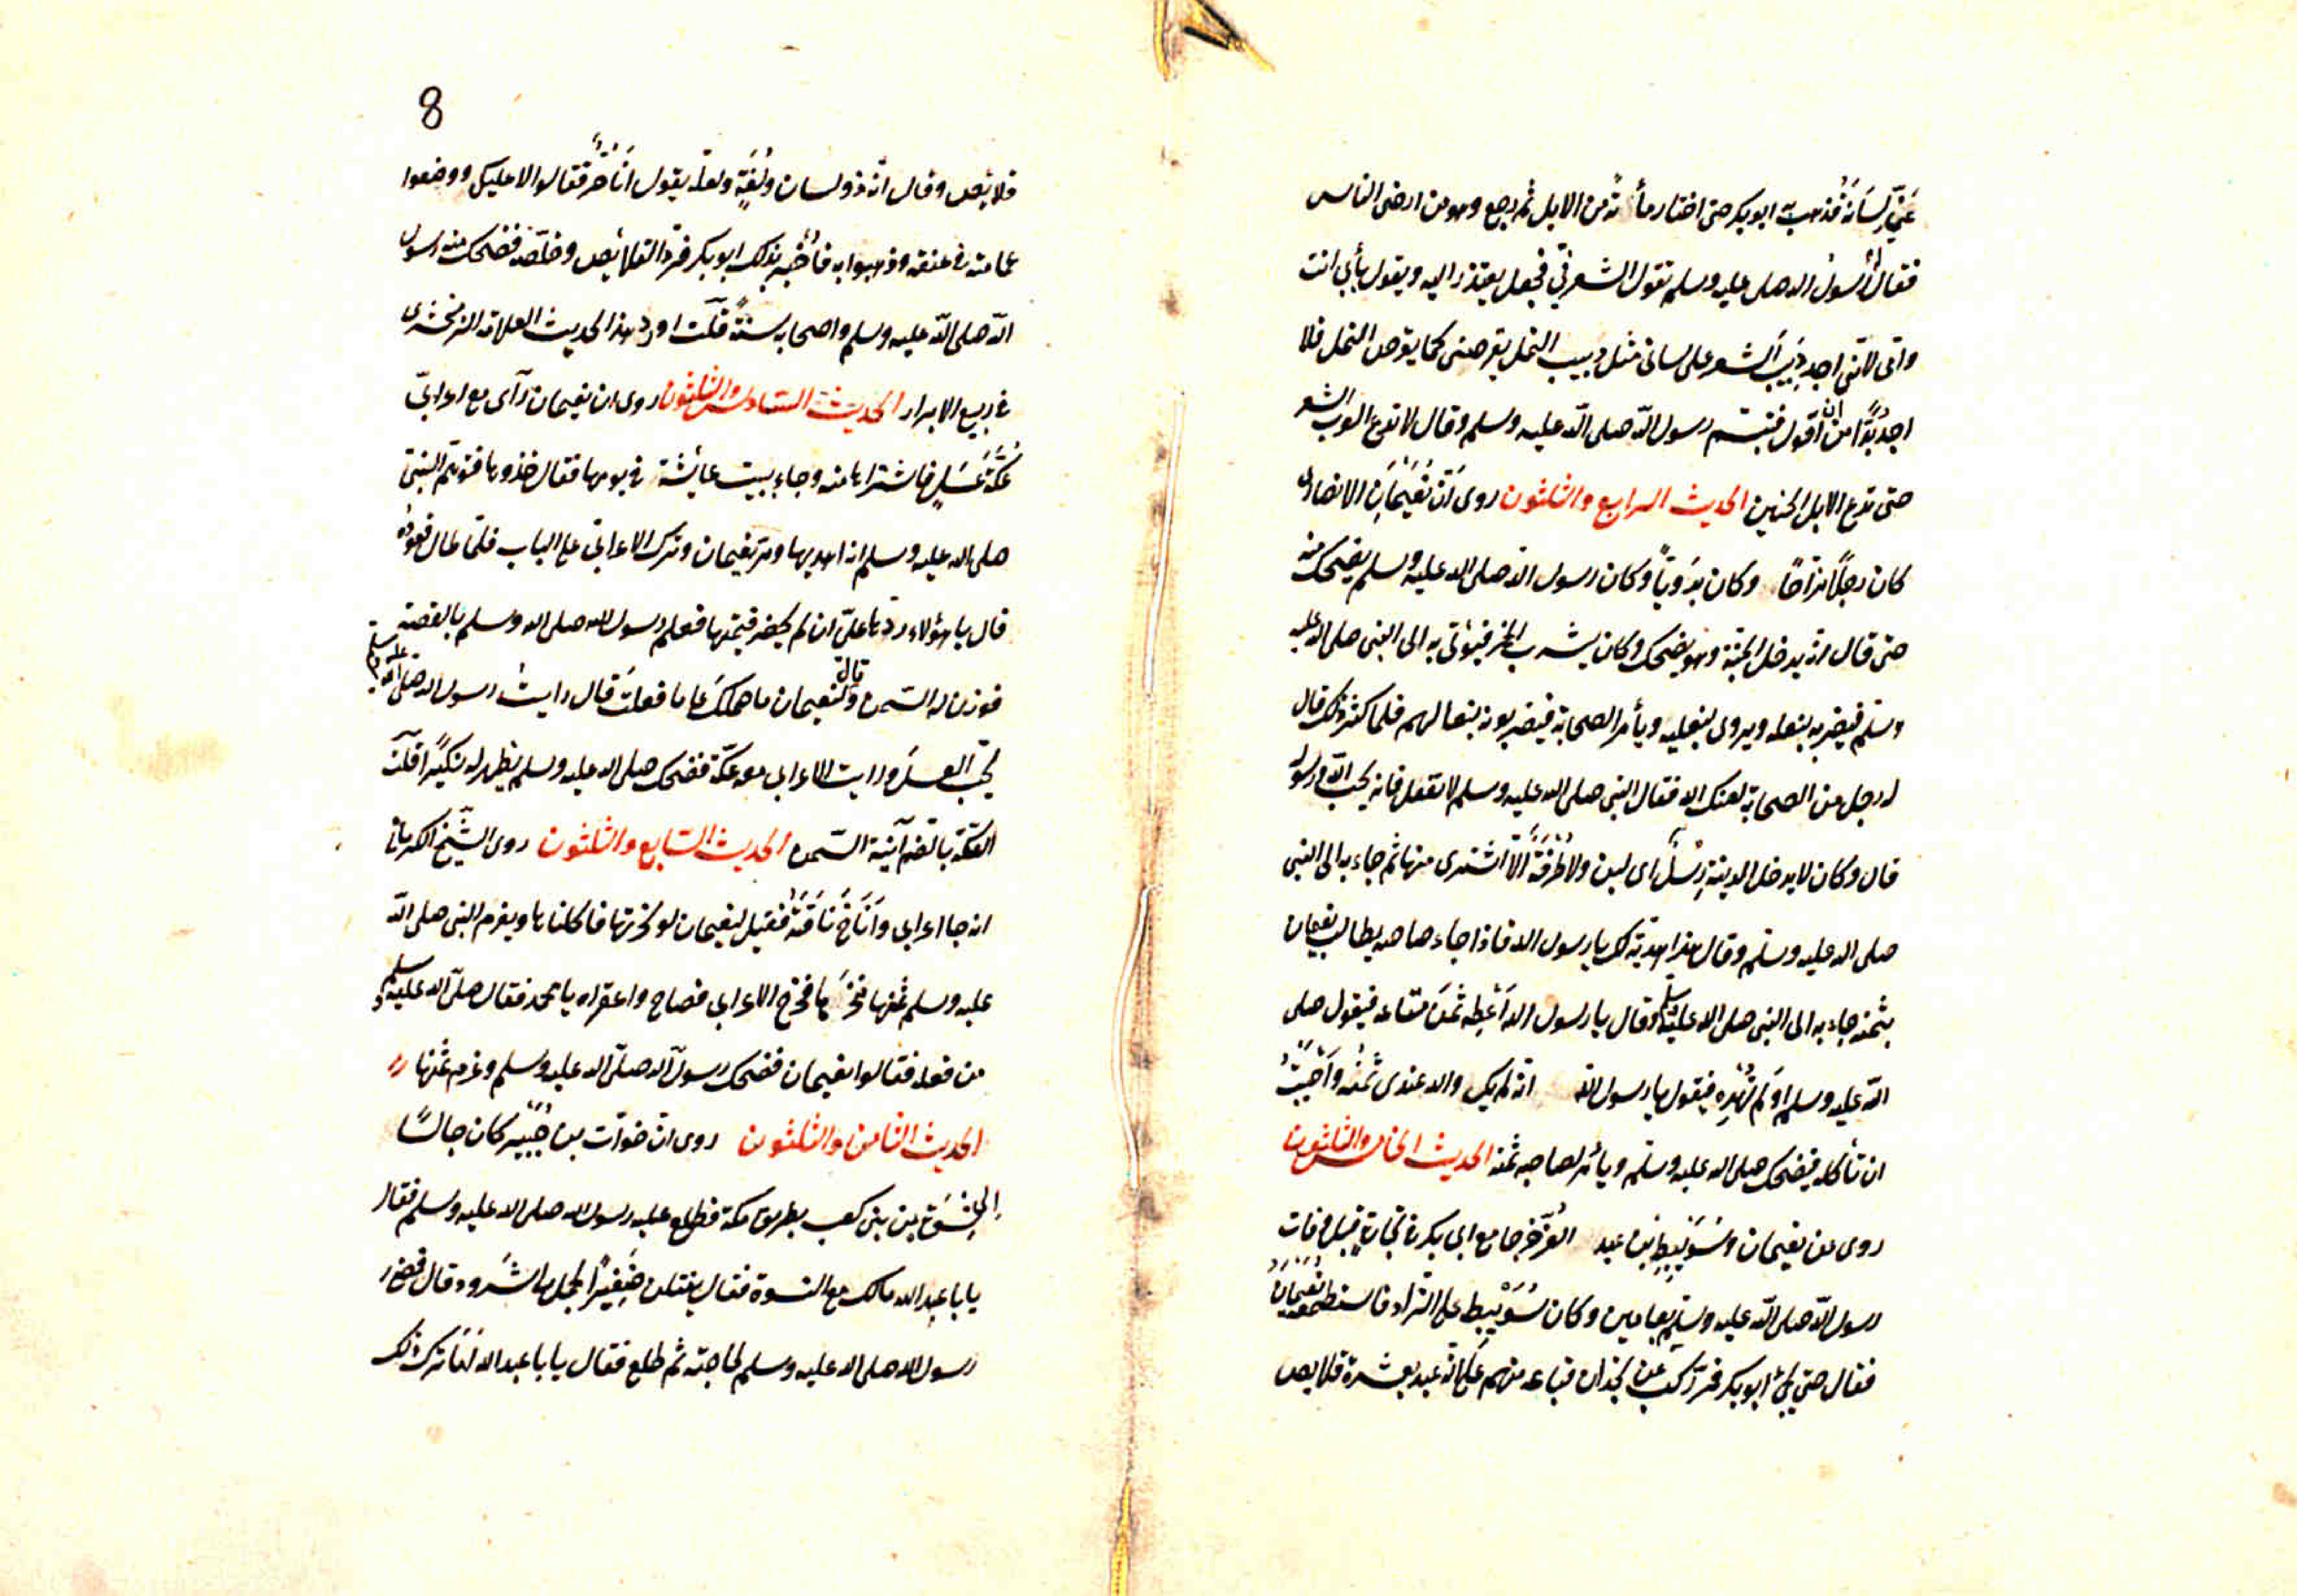 عَنّي لِسَانَهُ فذهب به ابو بكر حتى اختار مأئة من الابل ثم رجع وهو من ارضى الناس
فقال رسول الله صلى عليه وسلم تقول الشعر فيّ فجعل يعتذر اليه ويقول بأبي انت
وامّي لانّني اجد دَبيبَ الشعر على لساني مثل دبيب النمل يقرصني كما يقرص النمل فلا
اجد بُدًّا من ان اقول فتبسّم رسول الله صلى الله عليه وسلم وقال لا تدع العرب الشعر
حتى تدع الابل الحنين الحديث الرابع والثلثون روى انّ نُعَيْمَانِ الانصارى
كان رجلًا مزّاحًا وكان بدَويّاً وكان رسول الله صلى الله عليه وسلم يضحك منه
حتى قال انه يدخل الجنة وهو يضحك وكان يشرب الخمر فيؤتى به الى النبى صلى الله عليه
وسلم فيضربه بنعله ويروى بنعليه ويأمر الصحابة فيضربونه بنعالهم فلما كثر ذلك قال
له رجل من الصحابة لعنك الله فقال النبى صلى الله عليه وسلم لا تفعل فانه يحب الله ورسوله
قال وكان لا يدخل المدينة رِسْلٌ اى لبن ولا طُرْفَةٌ الّا اشترى منها ثم جاء به الى النبى
صلى الله عليه وسلم وقال هذا هدية لك يا رسول الله فاذا جاء صاحبه يطالب نعيمان
بثمنه جاء به الى النبى صلى الله عليه وسلم وقال يا رسول الله اَعْطِه ثمنَ متاعه فيقول صلى
الله عليه وسلم اوَلم تُهْدِهِ فيقول يا رسول الله انه لم يكن والله عندى ثمنُه واَحْبَبْتُ
ان تأكله فيضحك صلى الله عليه وسلم ويأمر لصاحبه ثمنه الحديث الخامس والثلثون
روى عن نعيمان وسُوَيْبِطِ بن عبد العُزّى خرجا مع ابى بكر في تجارةٍ قبل وفات
رسول الله صلى الله عليه وسلم بعامين وكان سُوَيْبِط على الزاد فاستطعمه نُعَيْمَانُ
فقال حتى يجئ ابو بكر فمرّ ركب من نجران فباعه منهم على انّه عبد بعشرة قلايص
8
قلايص وقال انه ذو لسان ولُغَةٍ ولعله يقول انَا حُرٌّ فقالوا لا عليك ووضعوا
عمامته في عنقه وذهبوا به فأُخْبِر بذلك ابو بكر فردّ القلايص وخلّصه فضحك منه رسول
الله صلى الله عليه وسلم واصحابه سنةً قلت اورد هذا الحديث العلامة الزمخشرى
في ربيع الابرار الحديث السادس والثلثون روى ان نعيمان رأى مع اعرابىّ
عُكّةَ عَسَلٍ فاشتراها منه وجاء ببيت عائشة في يومها فقال خذوها فتوهّم النبىّ
صلى الله عليه وسلم انه اهديها ومرّ نعيمان وترك الاعرابىّ على الباب فلمّا طال قعوده
قال يا هؤلاء ردّوها علىّ ان لم يحضر قيمتها فعلم رسول الله صلى الله وسلم بالقصة
فوزن له الثمن وقال لنعيمان ما حملك على ما فعلتَ قال رايت رسول الله صلى الله عليه وسلم
يحبّ العسلَ ورايت الاعرابى معه عكّة فضحك صلى الله عليه وسلم ولم يظهر له نكيرًا قلت
العكّة بالضم آنية السمن الحديث السابع والثلثون روى الشيخ الكرمانى
انه جا اعرابى واَنَاخَ نَاقَتَهُ فقيل لنعيمان لو نحرتها فاكلناها ويغرم النبى صلى الله
عليه وسلم ثمنها فنحرَها فخرج الاعرابى فصاح واعقراه يا محمد فقال صلى الله عليه وسلم
من فعله فقالوا نعيمان فضحك رسول الله صلى الله عليه وسلم وغرم ثمنها
الحديث الثامن والثلثون روى ان خوّات بن جُبَيْر كان جالسًا
الى نِسْوَةٍ من بنى كعب بطريق مكة فطلع عليه رسول الله صلى الله عليه وسلم فقال
يا با عبد الله مالك مع النسوة فقال يفتلن ضَفِيْرًا لجمل لى شَرود وقال فمضى
رسول الله صلى الله عليه وسلم لحاجته ثم طلع فقال يا با عبد الله اما ترك ذلك